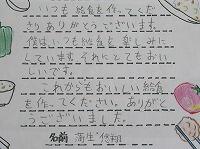 いつも給食を作ってくださ
りありがとうございます。
僕はいつも給食を楽しみに
しています。それにとてもおい
しいです。
これからもおいしい給食
を作ってください。ありがと
うございました。
名前 蒲生